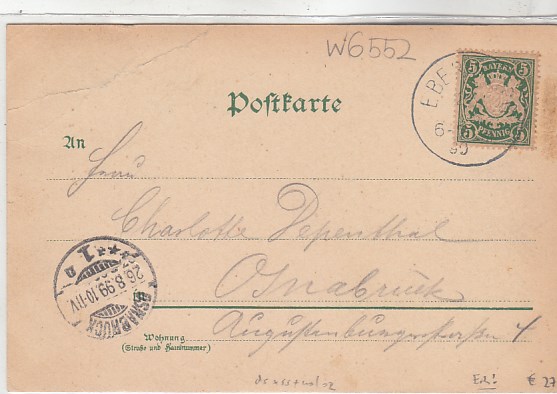 W6552
5 BAYERN 5
5 PFENNIG 5
EBE
6-
Postkarte
An
Charlotte Depenthal
Osnabrück
Augustenburgerstraße 4
OSNABRÜCK
26.8.99.10-11V.
1
Wohnung
(Straße und Hausnummer)
€ 27